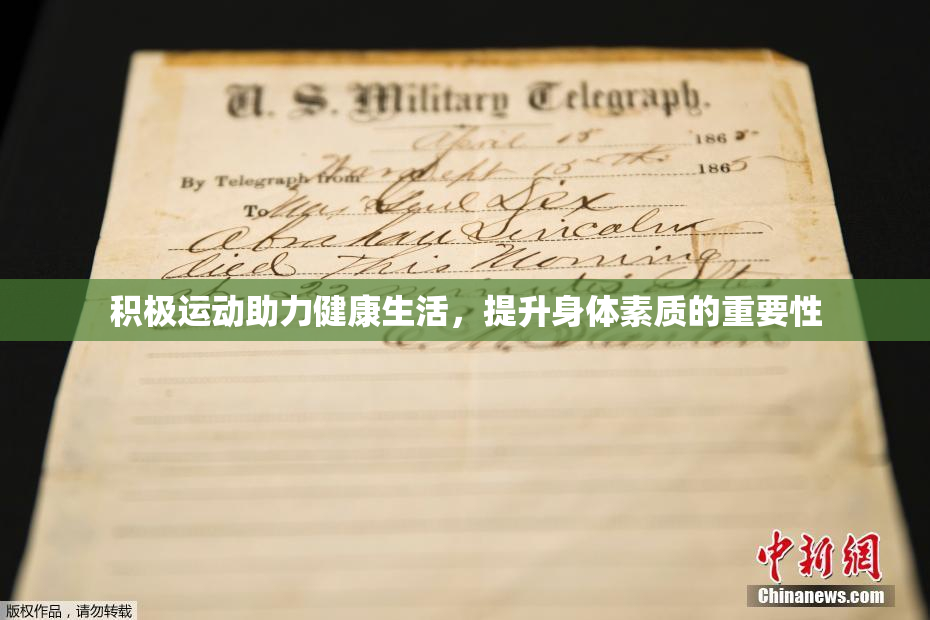 U. S. Military Telegraph.
April 15 1865
By Telegraph from War Dept 15th 1865
To Maj Genl Dix
Abraham Lincoln
died This Morning
at 22 minutes after
积极运动助力健康生活，提升身体素质的重要性
E. M. Stanton
中新网
Chinanews.com
版权作品，请勿转载